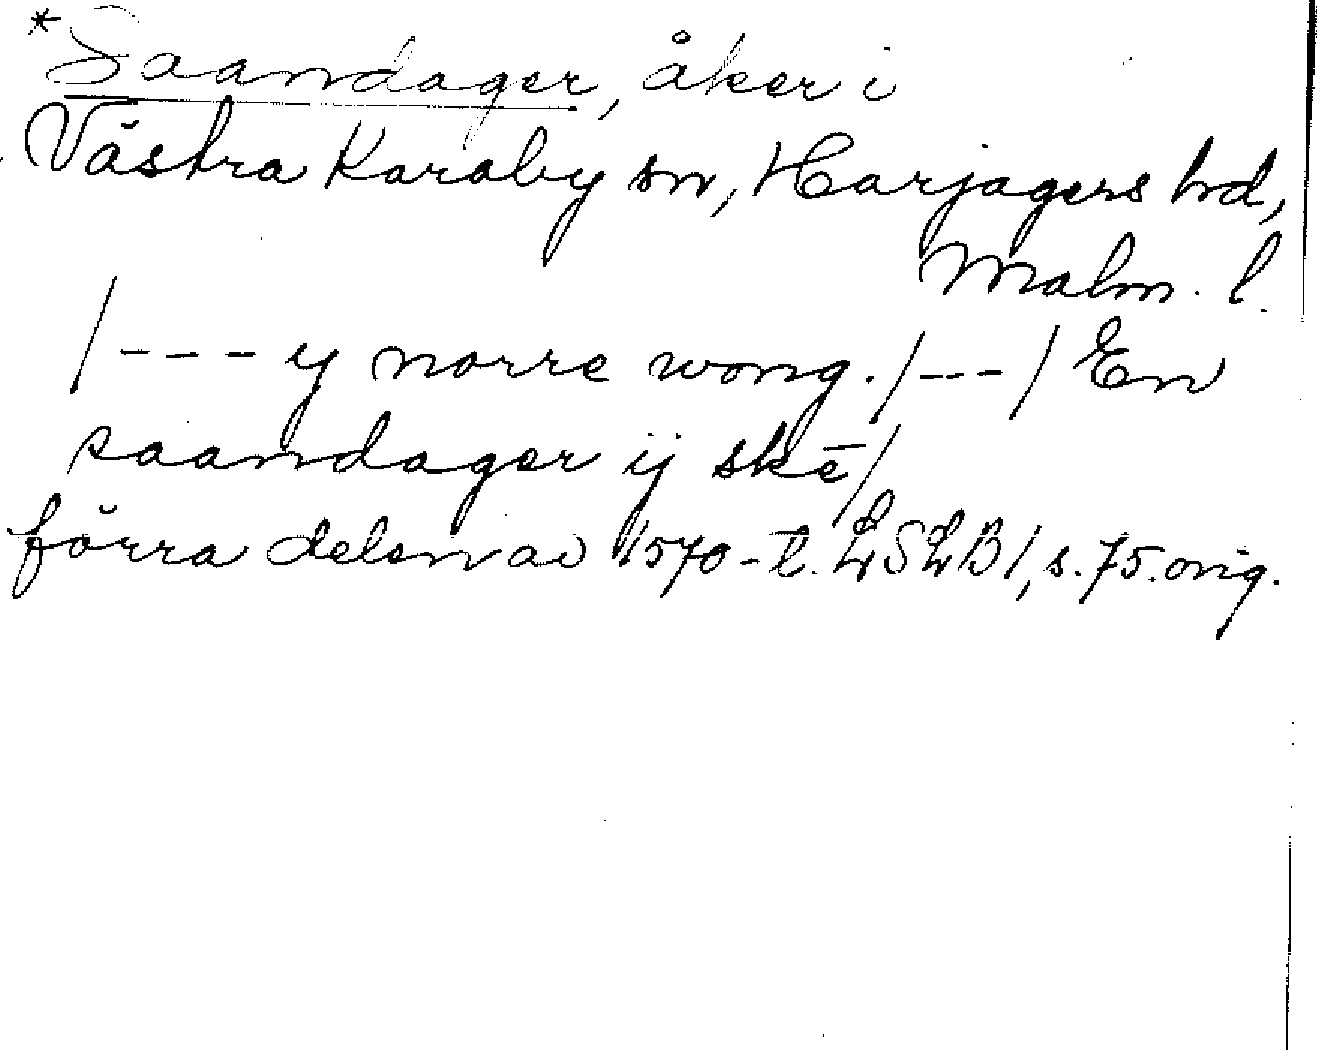 *Saandager, åker i
Västra Karaby sn, Harjagers hd,
Malm. l.
/--- ij norre wong./---/ En
saandager ij skē/
förra delen av 1570-t. LSLB1, s. 75. orig.